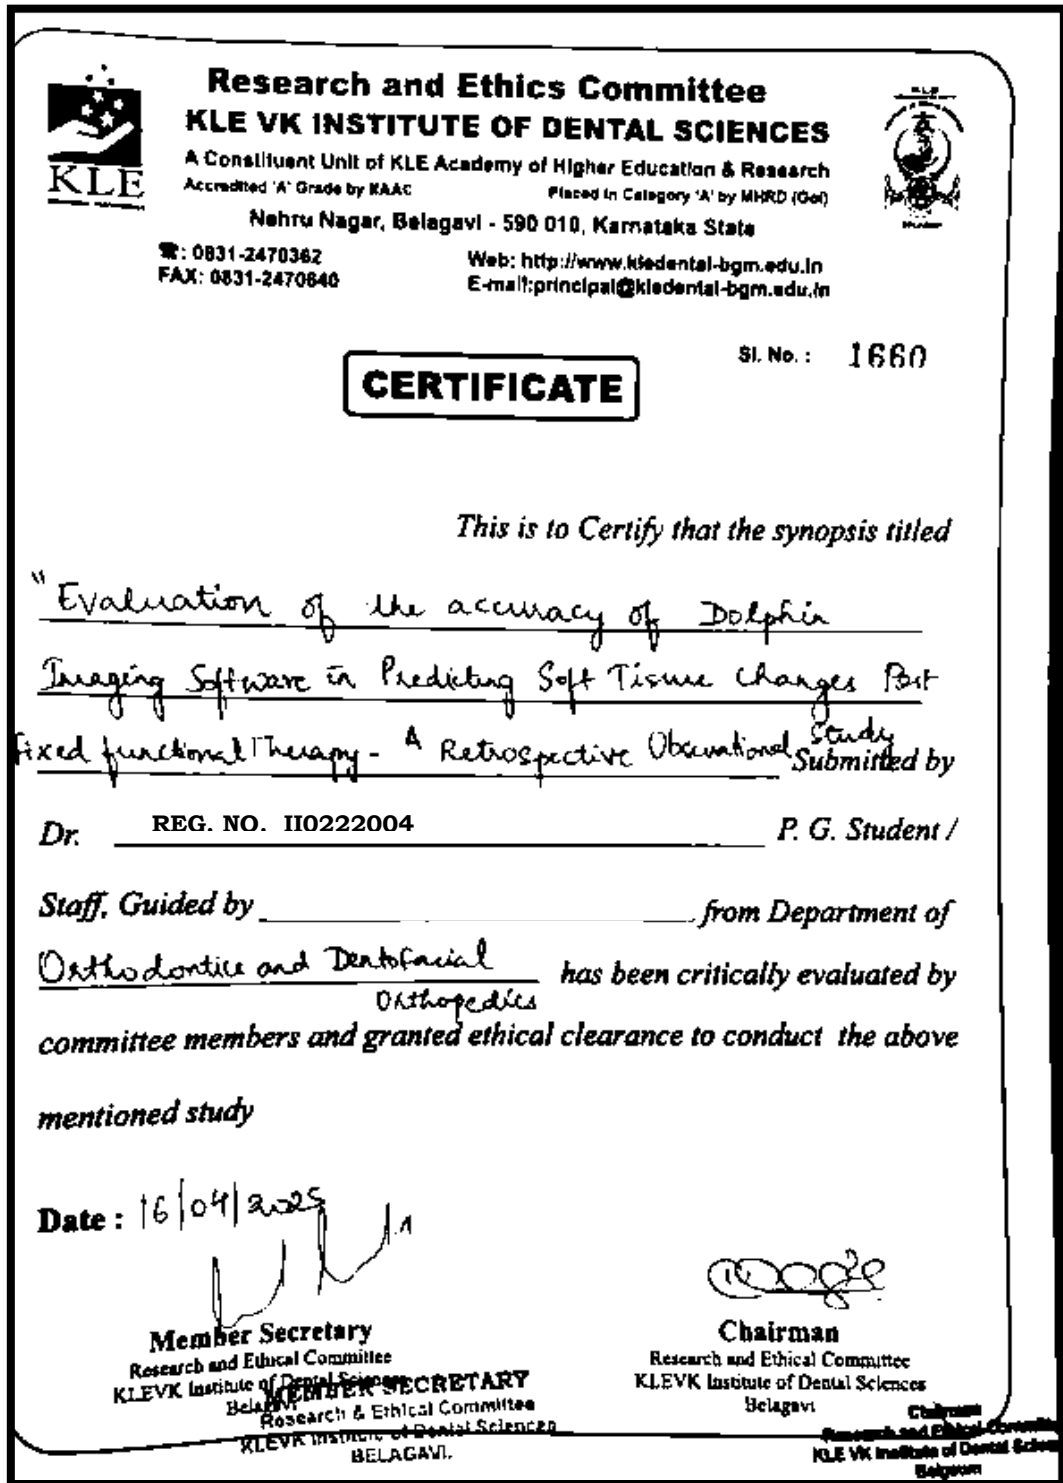 Research and Ethics Committee
KLE VK INSTITUTE OF DENTAL SCIENCES
A Constituent Unit of KLE Academy of Higher Education & Research
Accredited 'A' Grade by NAAC Placed in Category 'A' by MHRD (GoI)
KLE
Nehru Nagar, Belagavi - 590 010, Karnataka State
☎: 0831-2470362 Web: http://www.kledental-bgm.edu.in
FAX: 0831-2470640 E-mail:principal@kledental-bgm.edu.in
Sl. No. : 1660
CERTIFICATE
This is to Certify that the synopsis titled
"Evaluation of the accuracy of Dolphin
Imaging Software in Predicting Soft Tissue Changes Post
Fixed functional Therapy - A Retrospective Observational Study Submitted by
Dr. REG. NO. II0222004 P. G. Student /
Staff, Guided by from Department of
Orthodontics and Dentofacial has been critically evaluated by
Orthopedics
committee members and granted ethical clearance to conduct the above
mentioned study
Date : 16/04/2025
Member Secretary
Research and Ethical Committee
KLEVK Institute of Dental Sciences
Belagavi
MEMBER SECRETARY
Research & Ethical Committee
KLEVK Institute of Dental Sciences
BELAGAVI.
Chairman
Research and Ethical Committee
KLEVK Institute of Dental Sciences
Belagavi
Chairman
Research and Ethical Committee
KLE VK Institute of Dental Scien
Belgaum